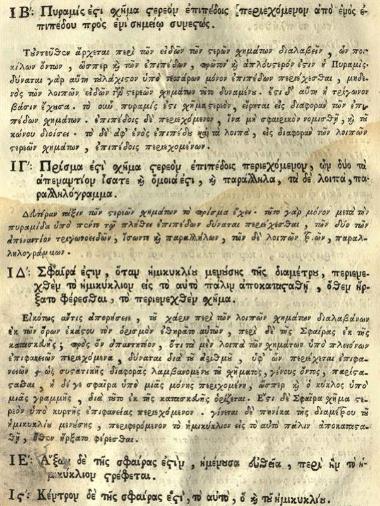 ΙΒ΄: Πυραμίς ἐςι σχῆμα ςερεὸν ἐπιπέδοις περιεχόμενον ἀπὸ ἑνὸς ἐπιπέδου πρὸς ἑνὶ σημείῳ συνεςώς.
Ἐντεῦθεν ἄρχεται περὶ τῶν εἰδῶν τῶν ςερεῶν σχημάτων διαλαβεῖν, ὧν ποικίλων ὄντων, ὥσπερ κ̀ τῶν ἐπιπέδων, πρῶτον κ̀ ἁπλούςερον ἐςὶν ἡ Πυραμίς·
δύναται γὰρ αὕτη τοὐλάχιςον ὑπὸ τεσσάρων μόνον ἐπιπέδων περιέχεσθαι, μηδενὸς τῶν λοιπῶν εἰδῶν τῶν ςερεῶν σχημάτων τοῦτο δυναμένου. ἔςι δ' αὕτη ἡ τρίγωνον
βάσιν ἔχουσα. τὸ οὖν, πυραμίς ἐςι σχῆμα ςερεόν, εἴρηται εἰς διαφορὰν τῶν ἐπιπέδων σχημάτων. ἐπιπέδοις δὲ περιεχόμενον, ἵνα μὴ σφαιρικὸν νομισθῇ, κ̀ τοῦ
κώνου διοίσει. τὸ δὲ ἀφ' ἑνὸς ἐπιπέδου καὶ τὰ λοιπά, εἰς διαφορὰν τῶν λοιπῶν
ςερεῶν σχημάτων, ἐπιπέδοις περιεχομένων.
ΙΓ΄: Πρίσμα ἐςὶ σχῆμα ςερεὸν ἐπιπέδοις περιεχόμενον, ὧν δύο τὰ
ἀπεναντίον ἴσατε κ̀ ὅμοιά ἐςι, κ̀ παράλληλα, τὰ δὲ λοιπά, παραλληλόγραμμα.
Δευτέραν τάξιν τῶν ςερεῶν σχημάτων τὸ πρίσμα ἔχει. τοῦτο γὰρ μόνον μετὰ τὴν
πυραμίδα ὑπὸ πέντε τῷ πλήθει ἐπιπέδων δύναται περιέχεσθαι, τῶν δύο τῶν
ἀπεναντίον τριγωνοειδῶν, ἴσωντε κ̀ παραλλήλων, τῶν δὲ λοιπῶν παραλληλογράμμων.
ΙΔ΄: Σφαῖρά ἐςιν, ὅταν ἡμικυκλίου μενούσης τῆς διαμέτρου, περιενεχθὲν τὸ ἡμικύκλιον εἰς τὸ αὐτὸ πάλιν ἀποκαταςαθῇ, ὅθεν ἤρξατο φέρεσθαι, τὸ περιενεχθὲν σχῆμα.
Εἰκότως ἄντις ἀπορήσειε, τί χάριν περὶ τῶν λοιπῶν σχημάτων διαλαμβάνων
ἐκ τῶν ὅρων ἑκάςου τὸν ὁρισμὸν ἐθηρᾶτο αὐτῶν, περὶ δὲ τῆς Σφαίρας ἐκ τῆς
κατασκευῆς; πρὸς ὃν ἀπαντητέον, ὅτι τὰ μὲν λοιπὰ τῶν σχημάτων ὑπὸ πλειόνων
ἐπιφανειῶν περιεχόμενα, δύναται διὰ τοῦ ἀριθμοῦ, ὑφ' ὧν περιέχεται ἐπιφανειῶν κ̀ ὡς συςατικῆς διαφορᾶς λαμβανομένου τοῦ σχήματος, γένους ὄντος, παρίςασθαι, ἡ δέ γε σφαῖρα ὑπὸ μιᾶς μόνης περιεχομένη, ὥσπερ κ̀ ὁ κύκλος ὑπὸ
μιᾶς γραμμῆς, διὰ τοῦτο ἐκ τῆς κατασκευῆς ὁρίζεται. Ἔςι δὲ Σφαῖρα σχῆμα ςερεὸν ὑπὸ κυρτῆς ἐπιφανείας περιεχόμενον. γίνεται δὲ πηνίκα τῆς διαμέτρου τοῦ
ἡμικυκλίου μενούσης, περιφερόμενον τὸ ἡμικύκλιον εἰς τὸ αὐτὸ πάλιν ἀποκαταςαθῇ, ὅθεν ἤρξατο φέρεσθαι.
ΙΕ΄: Ἄξων δὲ τῆς σφαίρας ἐςὶν, ἡ μένουσα εὐθεῖα, περὶ ἣν τὸ ἡμικύκλιον ςρέφεται.
Ις΄: Κέντρον δὲ τῆς σφαίρας ἐςὶ, τὸ αὐτό, ὃ κ̀ τοῦ ἡμικυκλίου.